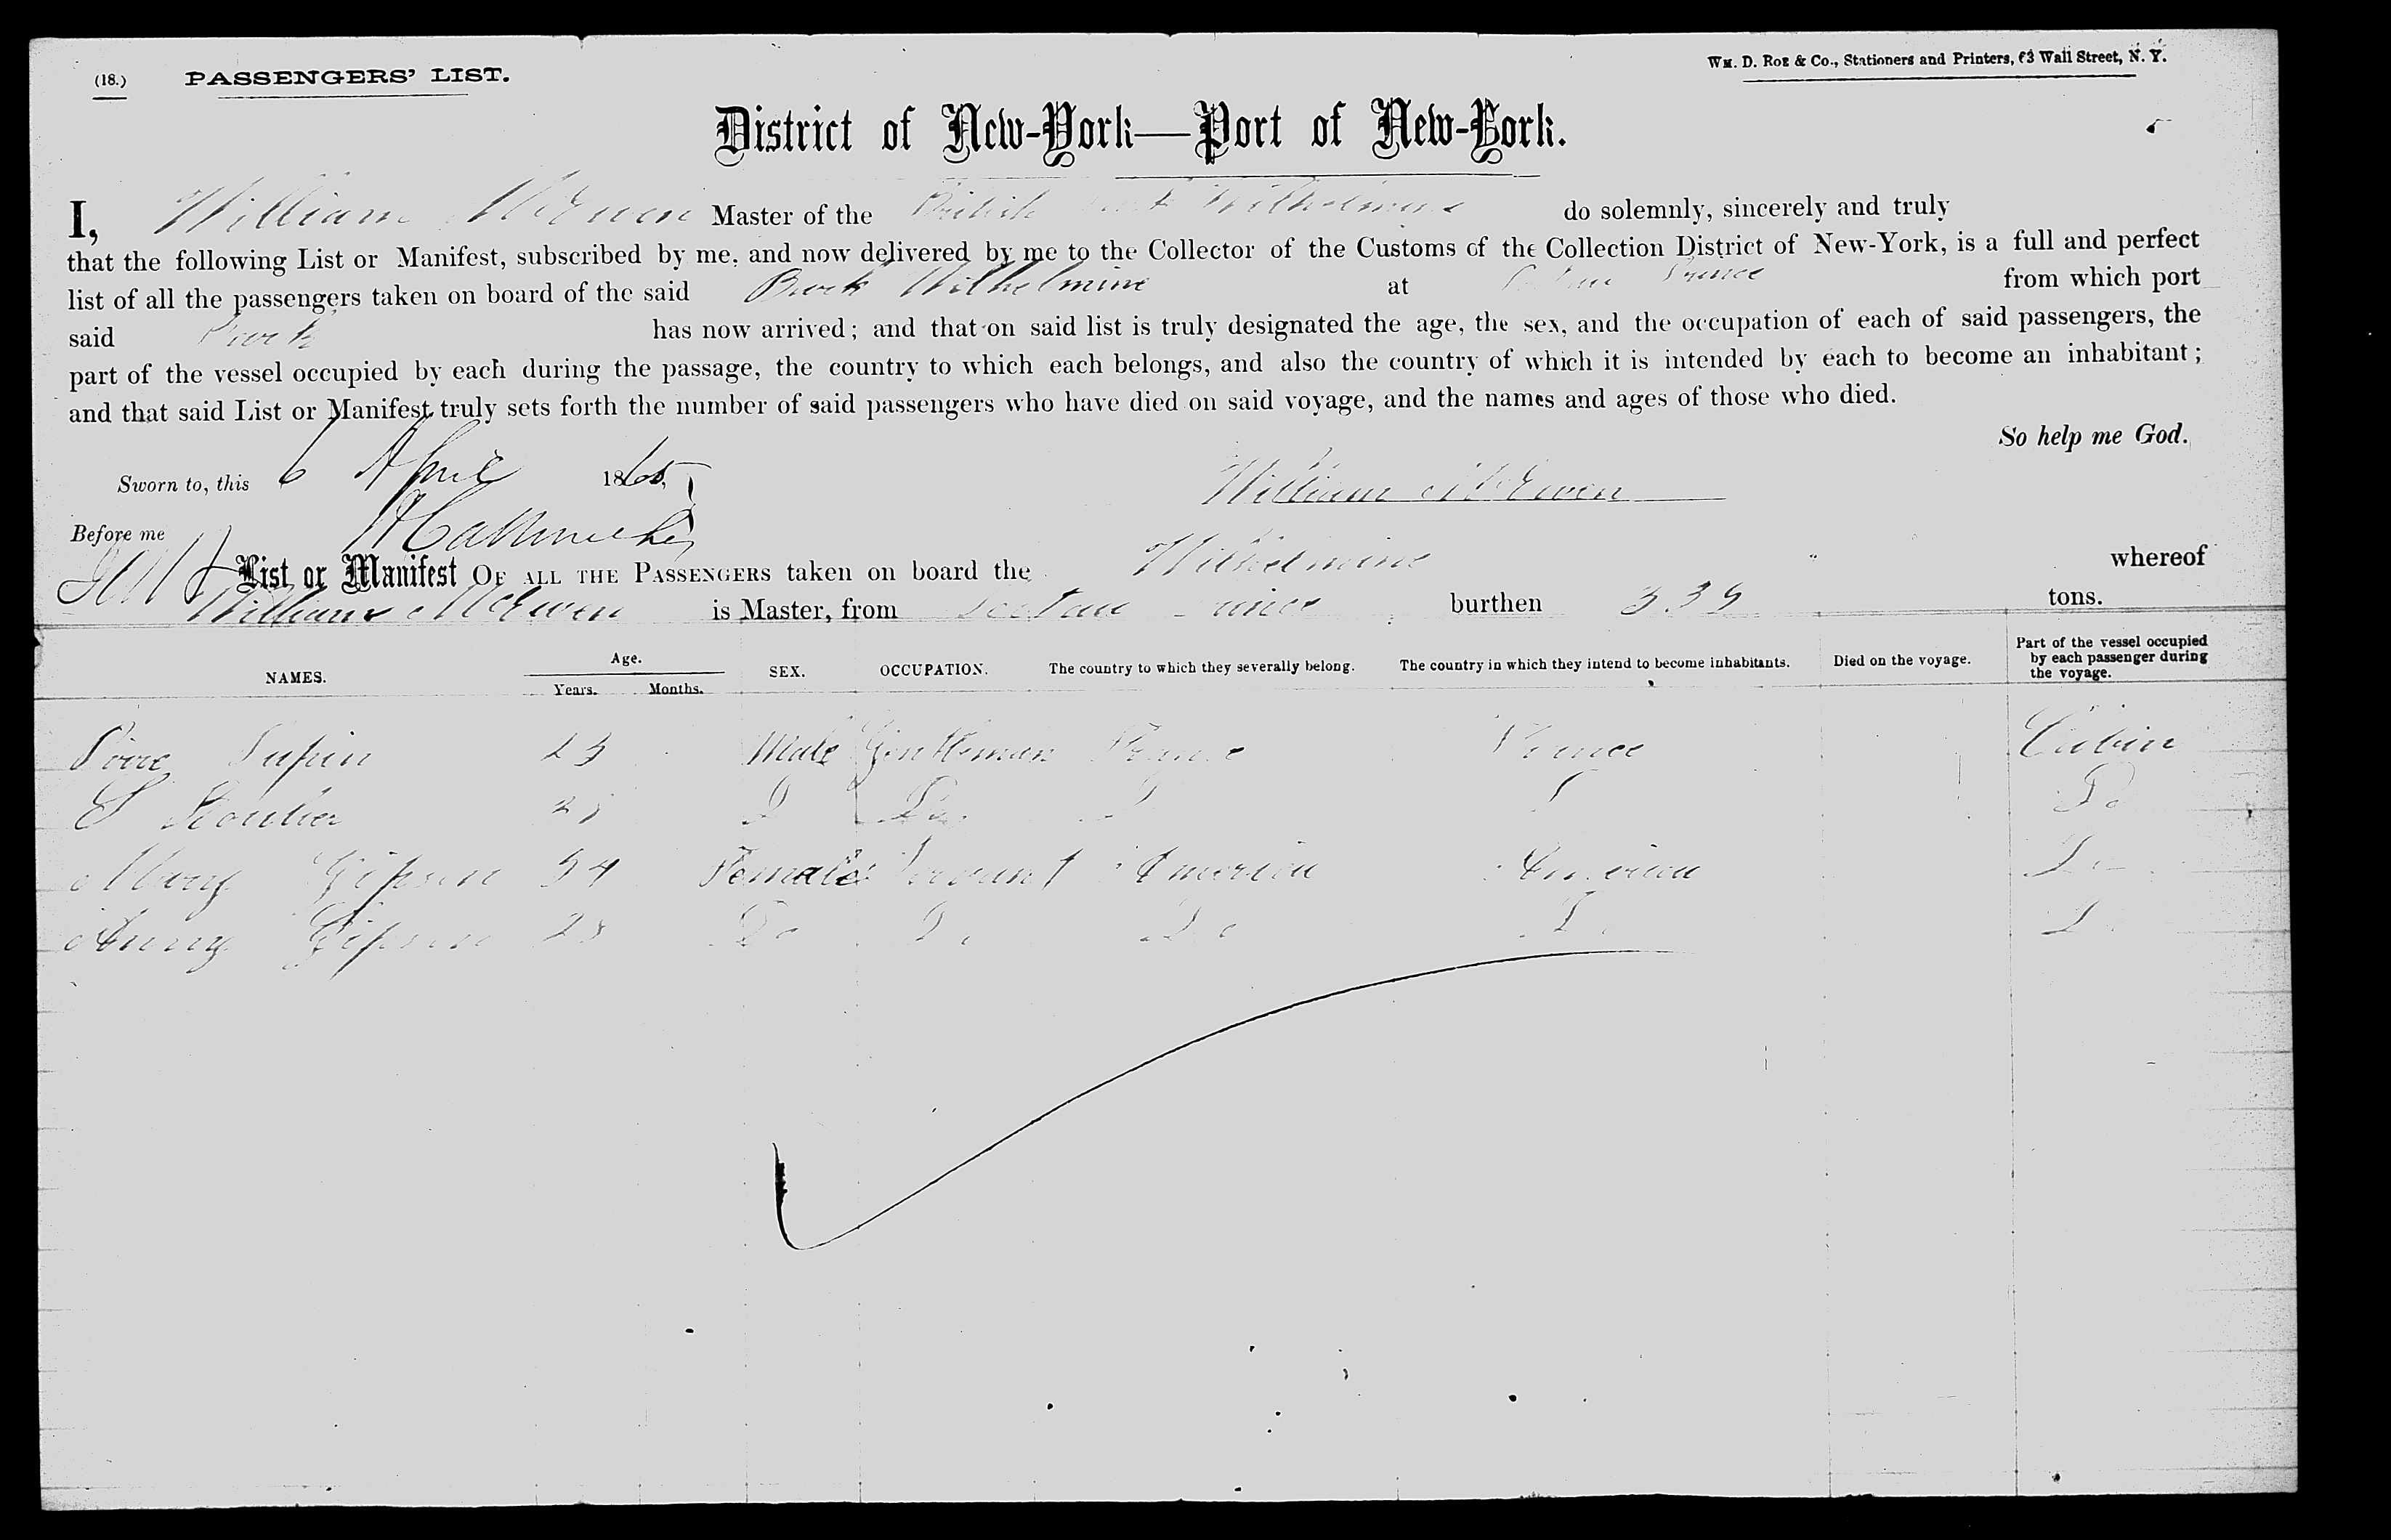 (18.) PASSENGERS' LIST. Wm. D. Roe & Co., Stationers and Printers, 63 Wall Street, N. Y.
District of New-York—Port of New-York.
I, William McEwen Master of the British Wilhelmine do solemnly, sincerely and truly
that the following List or Manifest, subscribed by me, and now delivered by me to the Collector of the Customs of the Collection District of New-York, is a full and perfect
list of all the passengers taken on board of the said Bark Wilhelmine at Prince from which port
said Bark has now arrived; and that on said list is truly designated the age, the sex, and the occupation of each of said passengers, the
part of the vessel occupied by each during the passage, the country to which each belongs, and also the country of which it is intended by each to become an inhabitant;
and that said List or Manifest truly sets forth the number of said passengers who have died on said voyage, and the names and ages of those who died.
So help me God.
Sworn to, this 6 April 1865 William McEwen
Before me
List or Manifest OF ALL THE PASSENGERS taken on board the Wilhelmine whereof
William McEwen is Master, from burthen 339 tons.
NAMES. Age. Years. Months. SEX. OCCUPATION. The country to which they severally belong. The country in which they intend to become inhabitants. Died on the voyage. Part of the vessel occupied by each passenger during the voyage.
Male Gentleman France Cabin
S Do Do
Mary Gipson 34 Female Servant America America Do
Anny Gipson 28 Do Do Do Do Do